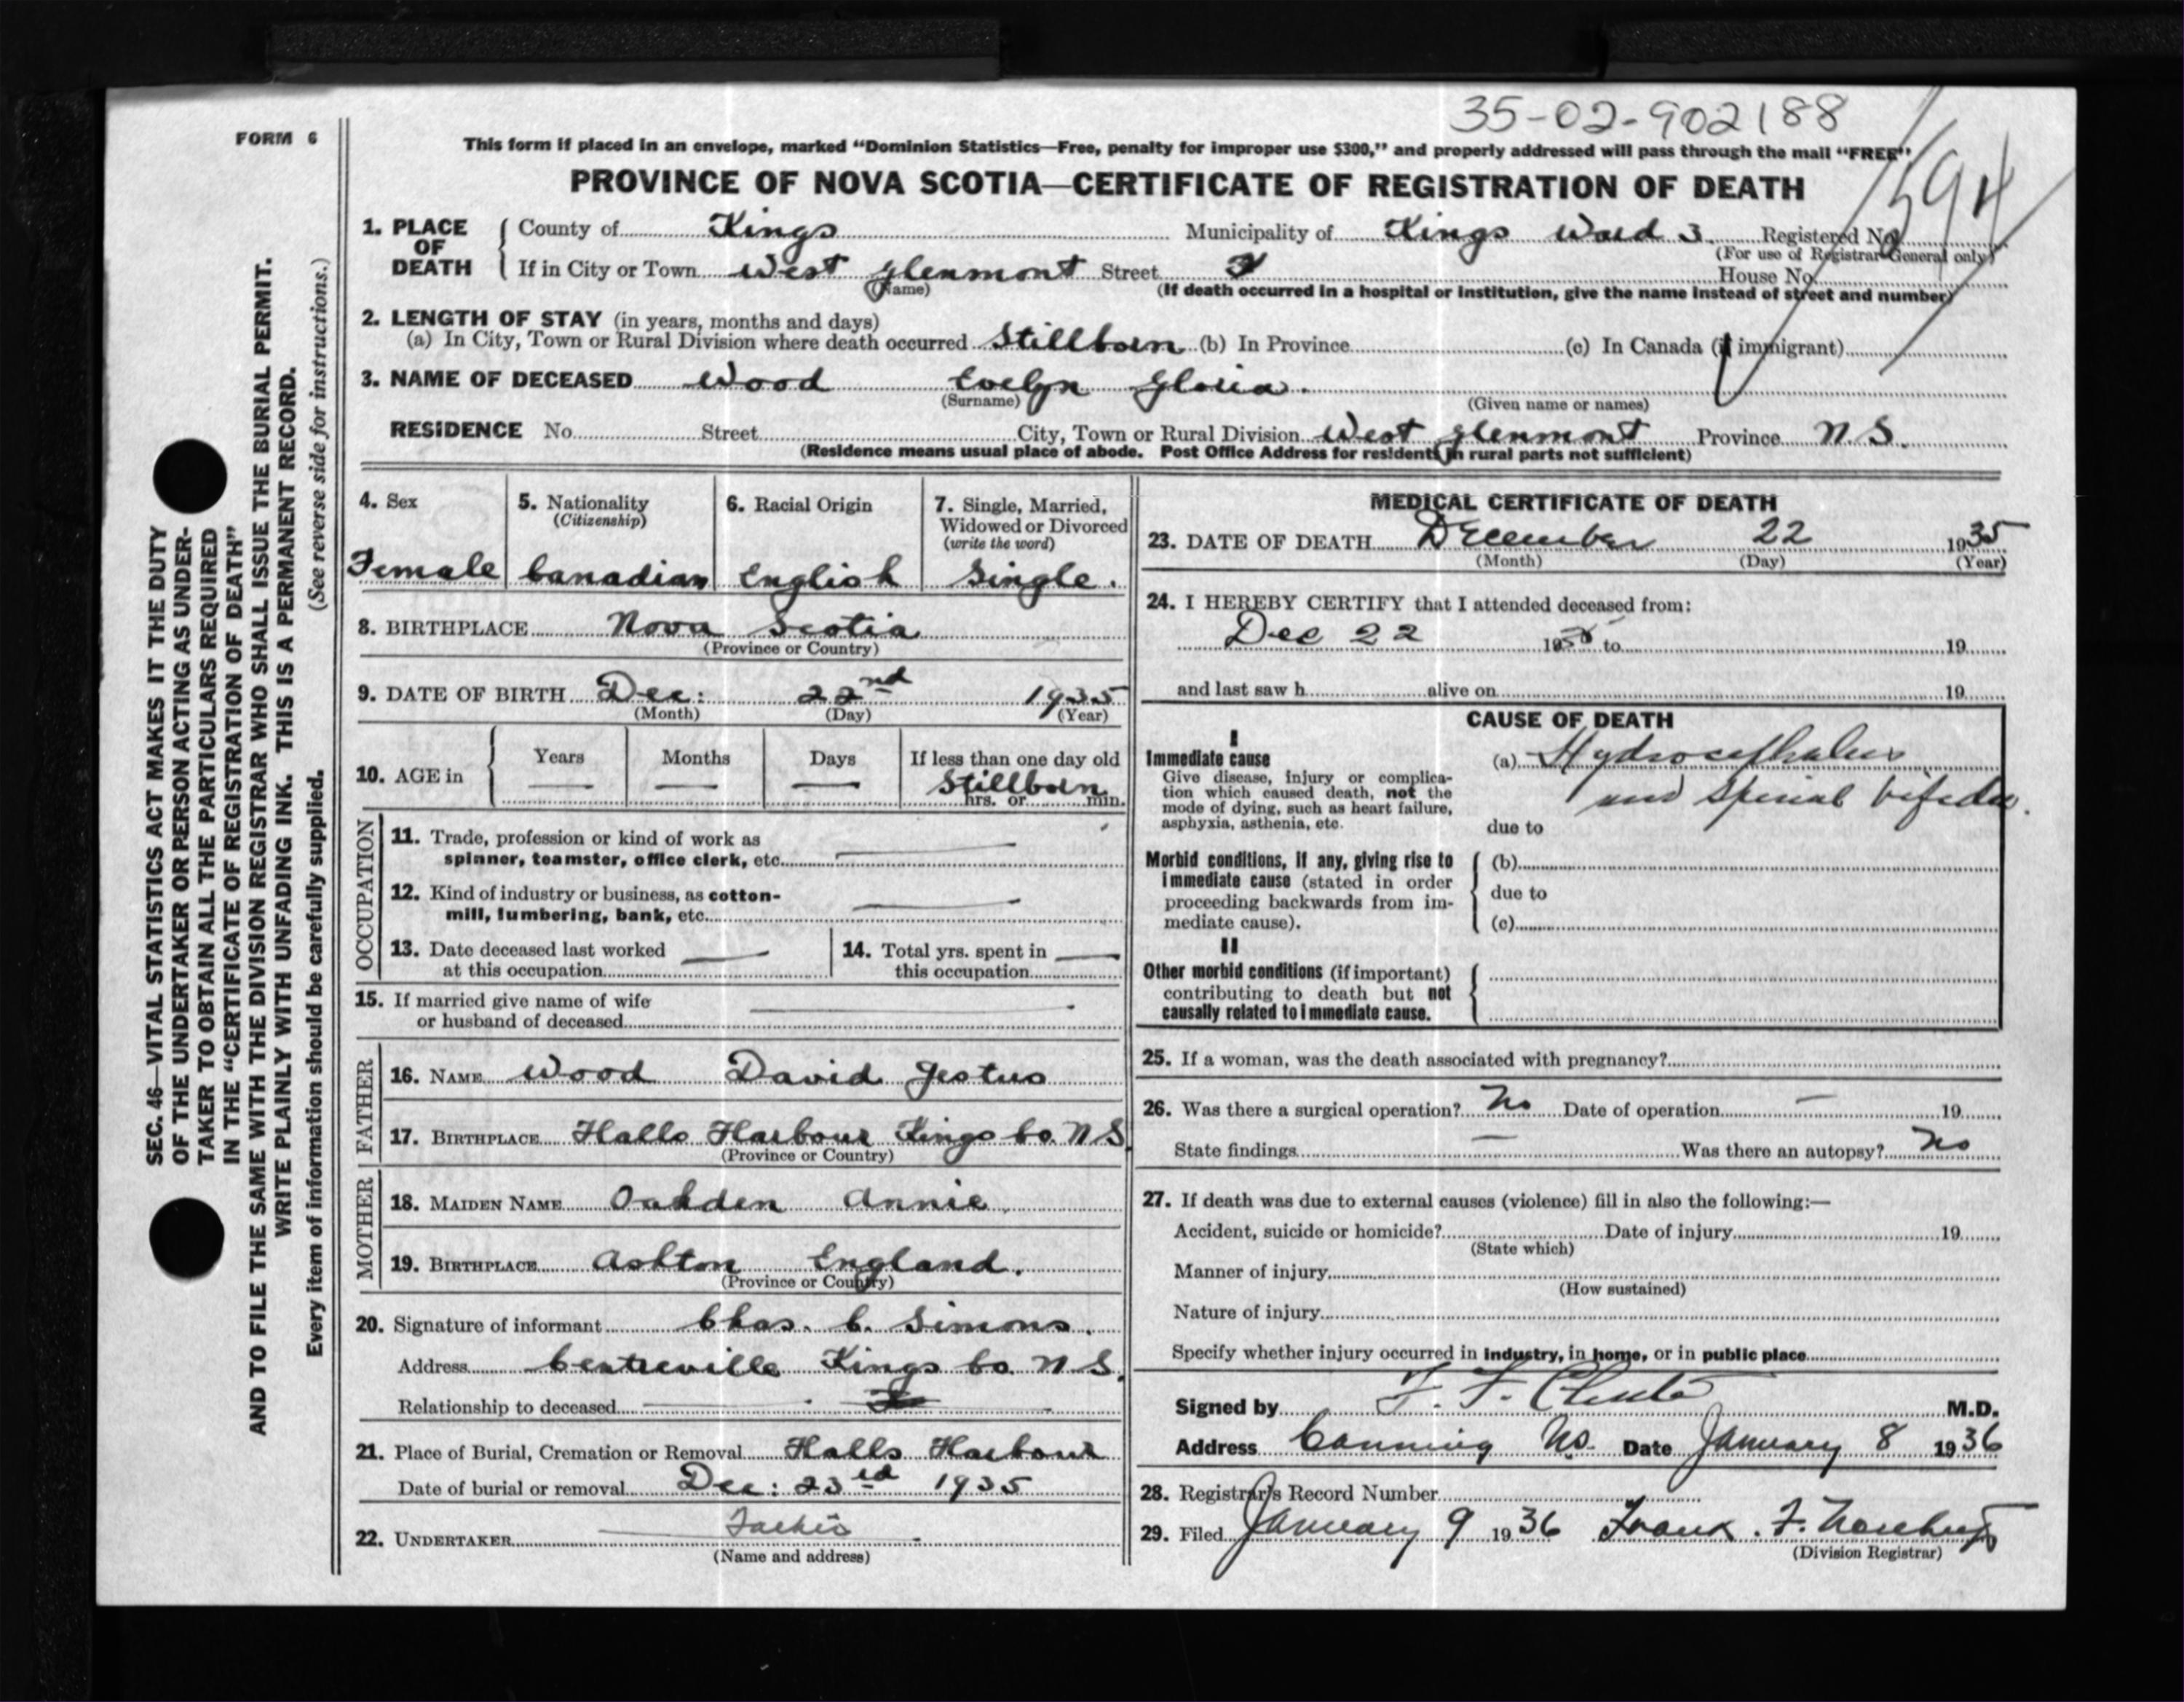 35-02-902188
FORM 6
This form if placed in an envelope, marked "Dominion Statistics—Free, penalty for improper use $300," and properly addressed will pass through the mail "FREE"
PROVINCE OF NOVA SCOTIA—CERTIFICATE OF REGISTRATION OF DEATH
1. PLACE OF DEATH
County of Kings Municipality of Kings Ward 3 Registered No.
(For use of Registrar General only)
If in City or Town West Glenmont Street House No.
(Name) (If death occurred in a hospital or institution, give the name instead of street and number)
2. LENGTH OF STAY (in years, months and days)
(a) In City, Town or Rural Division where death occurred Stillborn (b) In Province (c) In Canada (if immigrant)
3. NAME OF DECEASED Wood Evelyn Gloria.
(Surname) (Given name or names)
RESIDENCE No. Street City, Town or Rural Division West Glenmont Province N S.
(Residence means usual place of abode. Post Office Address for residents in rural parts not sufficient)
SEC. 46—VITAL STATISTICS ACT MAKES IT THE DUTY
OF THE UNDERTAKER OR PERSON ACTING AS UNDER-
TAKER TO OBTAIN ALL THE PARTICULARS REQUIRED
IN THE "CERTIFICATE OF REGISTRATION OF DEATH"
AND TO FILE THE SAME WITH THE DIVISION REGISTRAR WHO SHALL ISSUE THE BURIAL PERMIT.
WRITE PLAINLY WITH UNFADING INK. THIS IS A PERMANENT RECORD.
Every item of information should be carefully supplied. (See reverse side for instructions.)
4. Sex
Female
5. Nationality
(Citizenship)
Canadian
6. Racial Origin
English
7. Single, Married,
Widowed or Divorced
(write the word)
Single.
8. BIRTHPLACE Nova Scotia
(Province or Country)
9. DATE OF BIRTH Dec: 22nd 1935
(Month) (Day) (Year)
10. AGE in Years Months Days If less than one day old
— — — Stillborn
hrs. or min.
OCCUPATION
11. Trade, profession or kind of work as
spinner, teamster, office clerk, etc.
12. Kind of industry or business, as cotton-
mill, lumbering, bank, etc.
13. Date deceased last worked
at this occupation
14. Total yrs. spent in
this occupation
15. If married give name of wife
or husband of deceased
FATHER
16. NAME Wood David
17. BIRTHPLACE Halls Harbour Kings Co. N S
(Province or Country)
MOTHER
18. MAIDEN NAME Oakden Annie
19. BIRTHPLACE Ashton England.
(Province or Country)
20. Signature of informant Chas. C. Simons.
Address Centreville Kings Co. N S.
Relationship to deceased
21. Place of Burial, Cremation or Removal Halls Harbour
Date of burial or removal Dec: 23rd 1935
22. UNDERTAKER
(Name and address)
MEDICAL CERTIFICATE OF DEATH
23. DATE OF DEATH December 22 1935
(Month) (Day) (Year)
24. I HEREBY CERTIFY that I attended deceased from:
Dec 22 1935 to 19
and last saw h alive on 19
CAUSE OF DEATH
I
Immediate cause
Give disease, injury or complica-
tion which caused death, not the
mode of dying, such as heart failure,
asphyxia, asthenia, etc.
(a) Hydrocephalus
and Spinal bifida.
due to
Morbid conditions, if any, giving rise to
immediate cause (stated in order
proceeding backwards from im-
mediate cause).
(b)
due to
(c)
II
Other morbid conditions (if important)
contributing to death but not
causally related to immediate cause.
25. If a woman, was the death associated with pregnancy?
26. Was there a surgical operation? No Date of operation — 19
State findings — Was there an autopsy? No
27. If death was due to external causes (violence) fill in also the following:—
Accident, suicide or homicide? Date of injury 19
(State which)
Manner of injury
(How sustained)
Nature of injury
Specify whether injury occurred in industry, in home, or in public place
Signed by F. F. Chute M.D.
Address Canning NS. Date January 8 1936
28. Registrar's Record Number
29. Filed January 9 1936 Frank. F.
(Division Registrar)